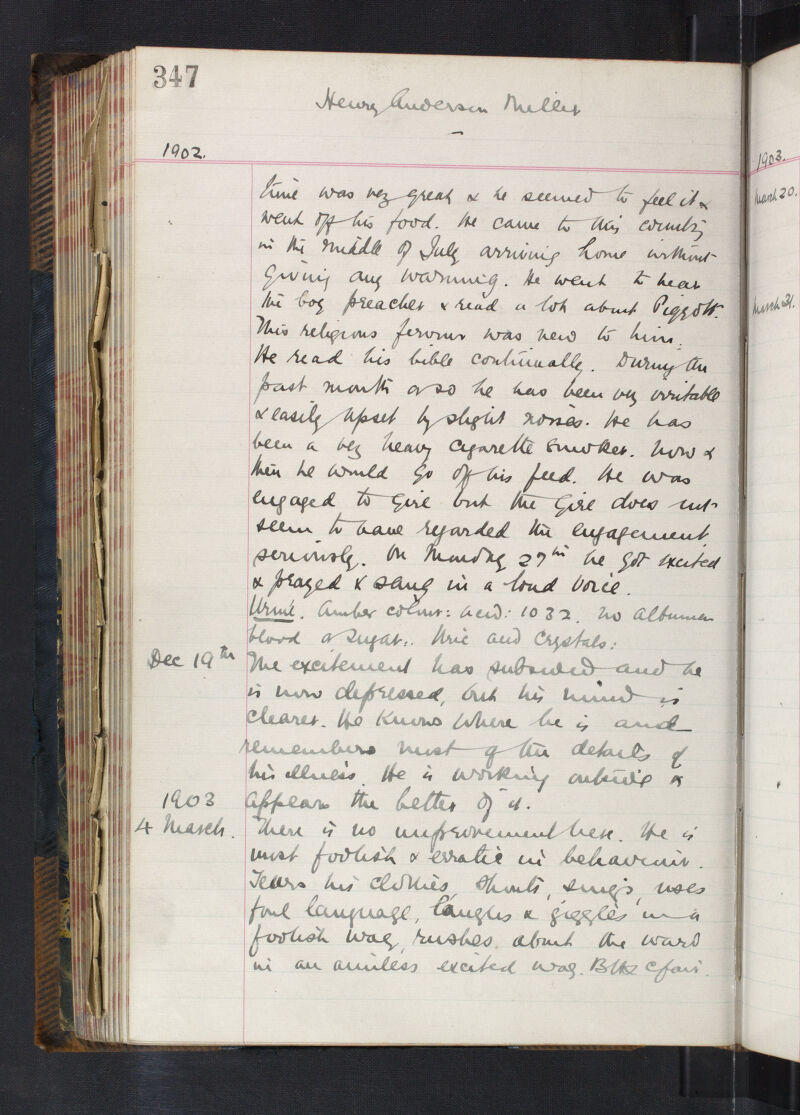 347
Henry Anderson Miller
1902.
time was very great & he seemed to feel it &
went off his food. He came to this country
in the middle of July arriving home without
giving any warning. He went to hear
the boy preacher & read a lot about Piggott.
This religious fervour was new to him.
He read his bible continually. During the
past month or so he has been very irritable
& easily upset by slight noises. He has
been a very heavy cigarette smoker. Now &
then he would go off his feed. He was
engaged to girl but the girl does not
seem to have regarded the engagement
seriously. On Monday 27th he got excited
& prayed & sang in a loud voice.
Urine. Amber colour: acid: 1032. no albumen
blood or sugar. Uric acid crystals:
Dec 19th The excitement has subsided and he
is now depressed, but his mind is
clearer. He knows where he is and
remembers most of the details of
his illness. He is working outside &
appears the better of it.
1903
4 March. There is no improvement here. He is
most foolish & erratic in behaviour.
Tears his clothes, shouts, sings, uses
foul language, laughs & giggles in a
foolish way, rushes about the ward
in an aimless excited way. fair.
1903.
March 20.
March 31.